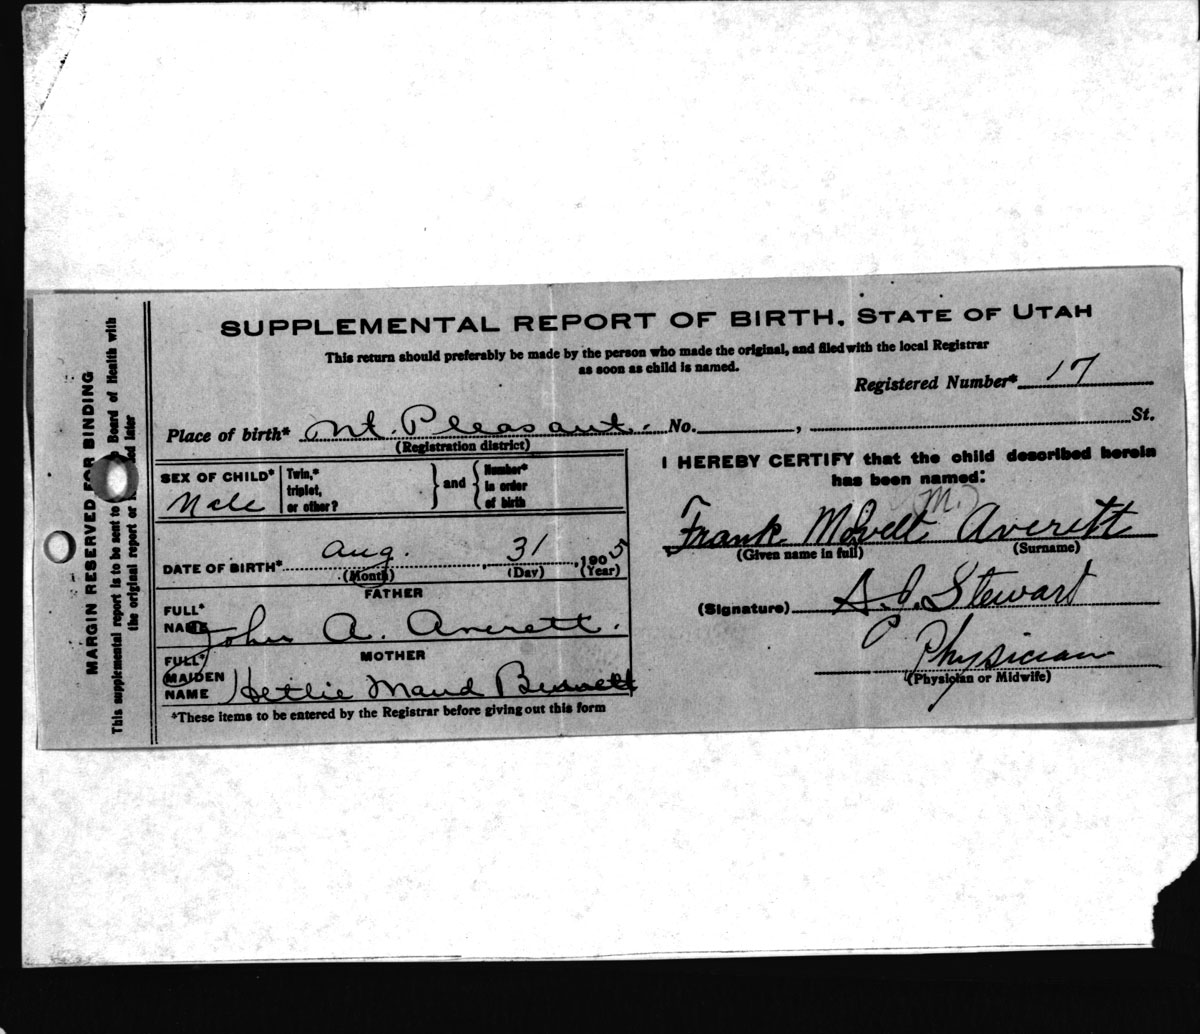 SUPPLEMENTAL REPORT OF BIRTH. STATE OF UTAH
This return should preferably be made by the person who made the original, and filed with the local Registrar
as soon as child is named.
Registered Number* 17
Place of birth* Mt. Pleasant. No. , St.
(Registration district)
SEX OF CHILD* Male
Twin,* triplet, or other?
and
Number* in order of birth
DATE OF BIRTH* Aug. 31, 1905
(Month) (Day) (Year)
FATHER
FULL* NAME John A. Averett.
MOTHER
FULL* MAIDEN NAME Hettie Maud
*These items to be entered by the Registrar before giving out this form
I HEREBY CERTIFY that the child described herein
has been named:
M.
Frank Averett
(Given name in full) (Surname)
(Signature) Stewart
Physician
(Physician or Midwife)
MARGIN RESERVED FOR BINDING
This supplemental report is to be sent to Board of Health with
the original report or later